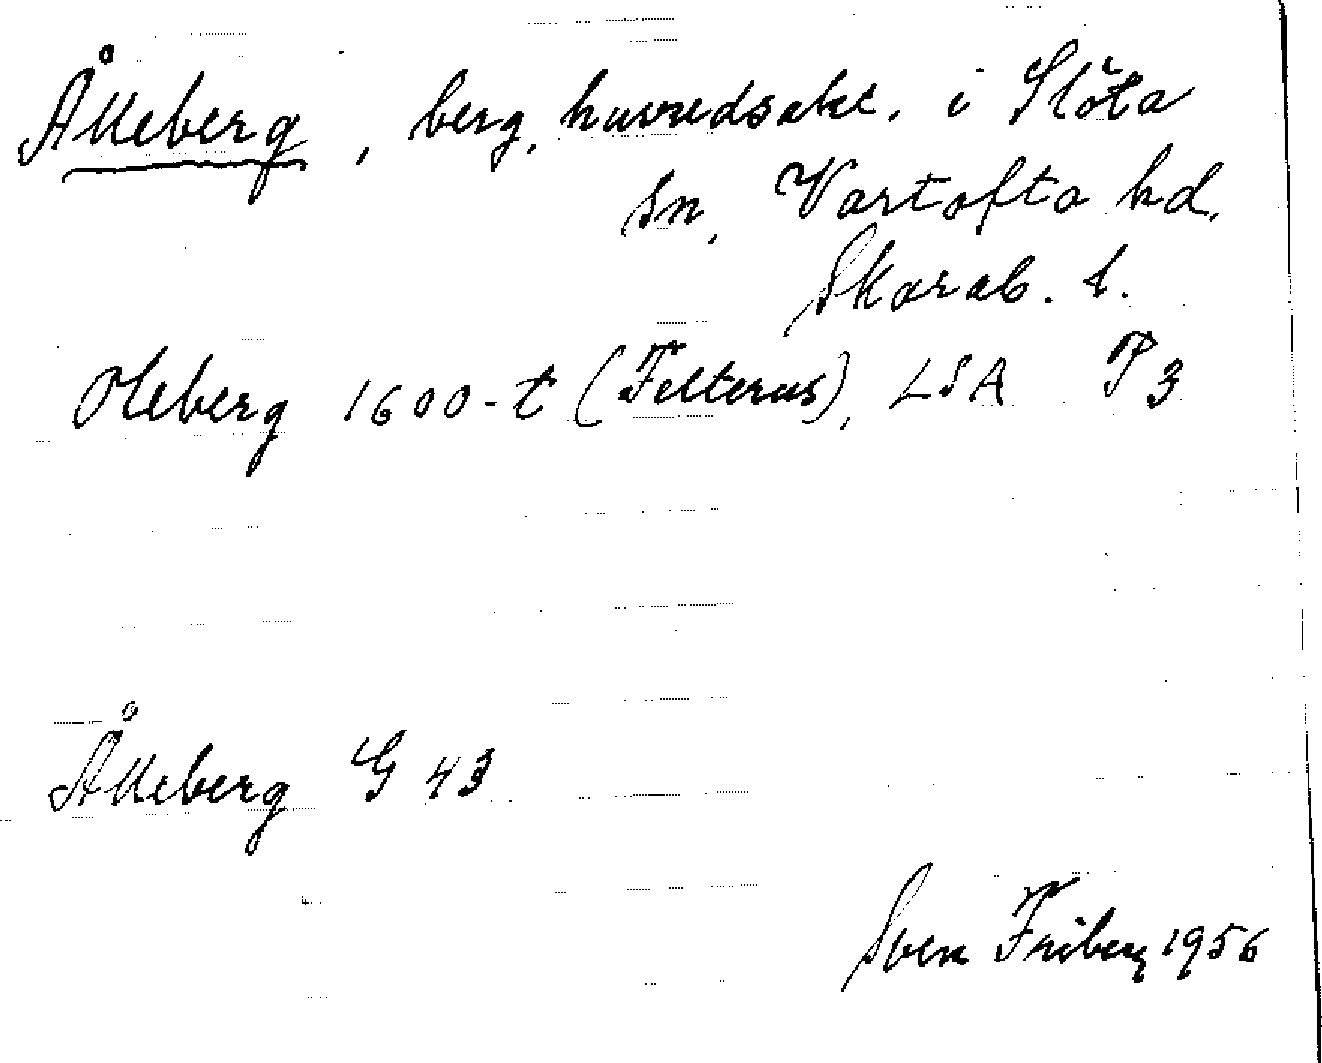 Ålleberg, berg, huvudsakl. i Slöta
sn, Vartofta hd,
Skarab. l.
Oleberg 1600-t (Felterus), LSA P3
Ålleberg G 43
Sven Friberg 1956